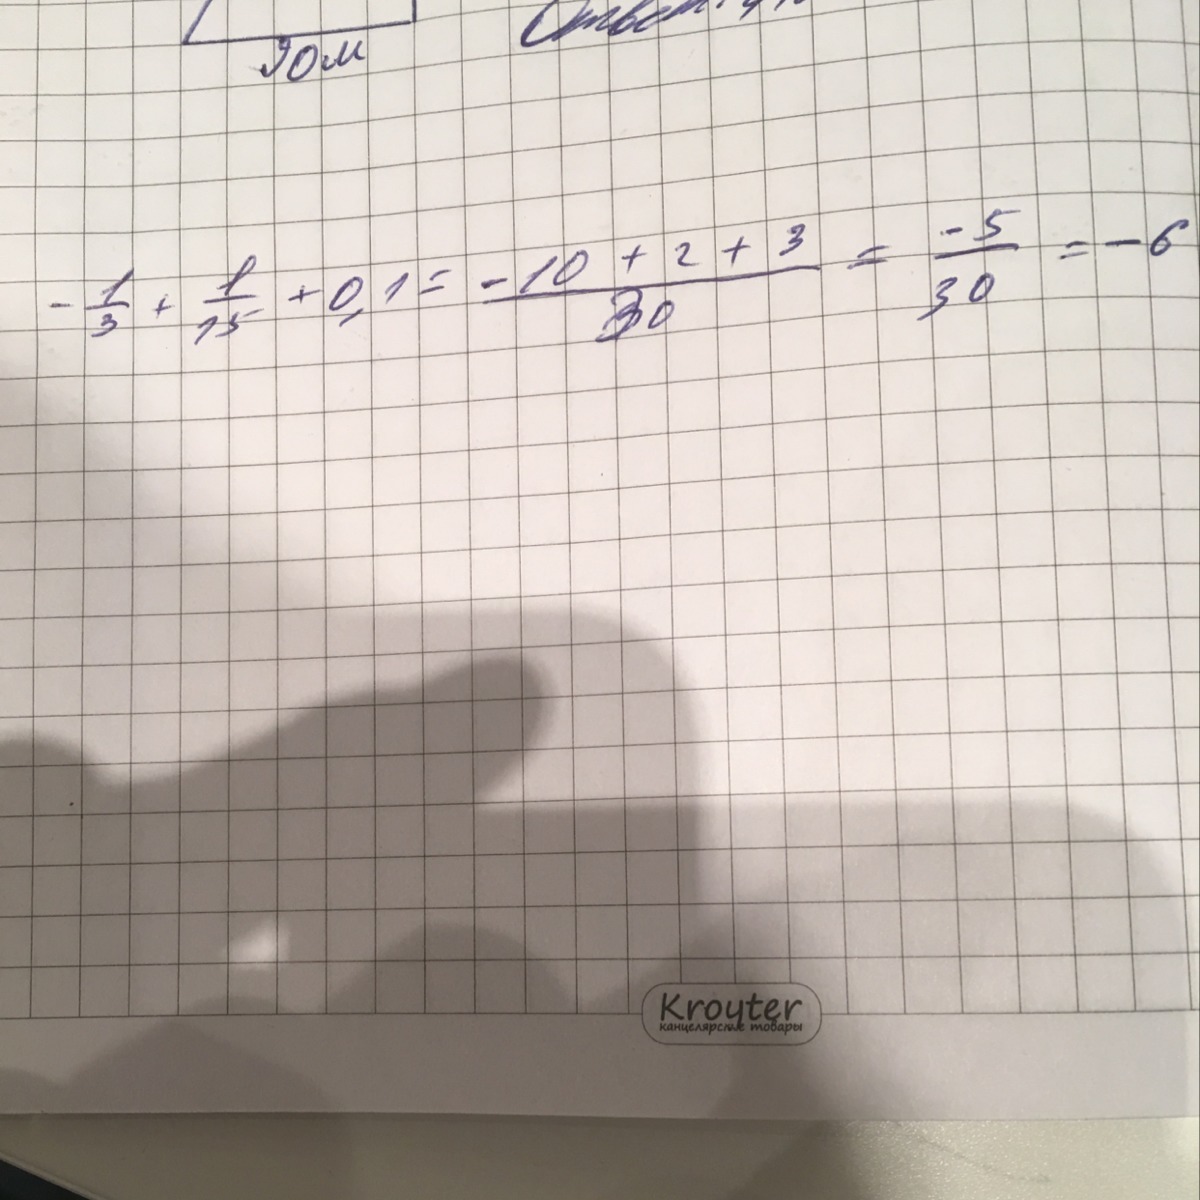 90м
Ответ:
-1/3 + 1/15 + 0,1 = -10 + 2 + 3/30 = -5/30 = -6
Kroyter
канцелярские товары